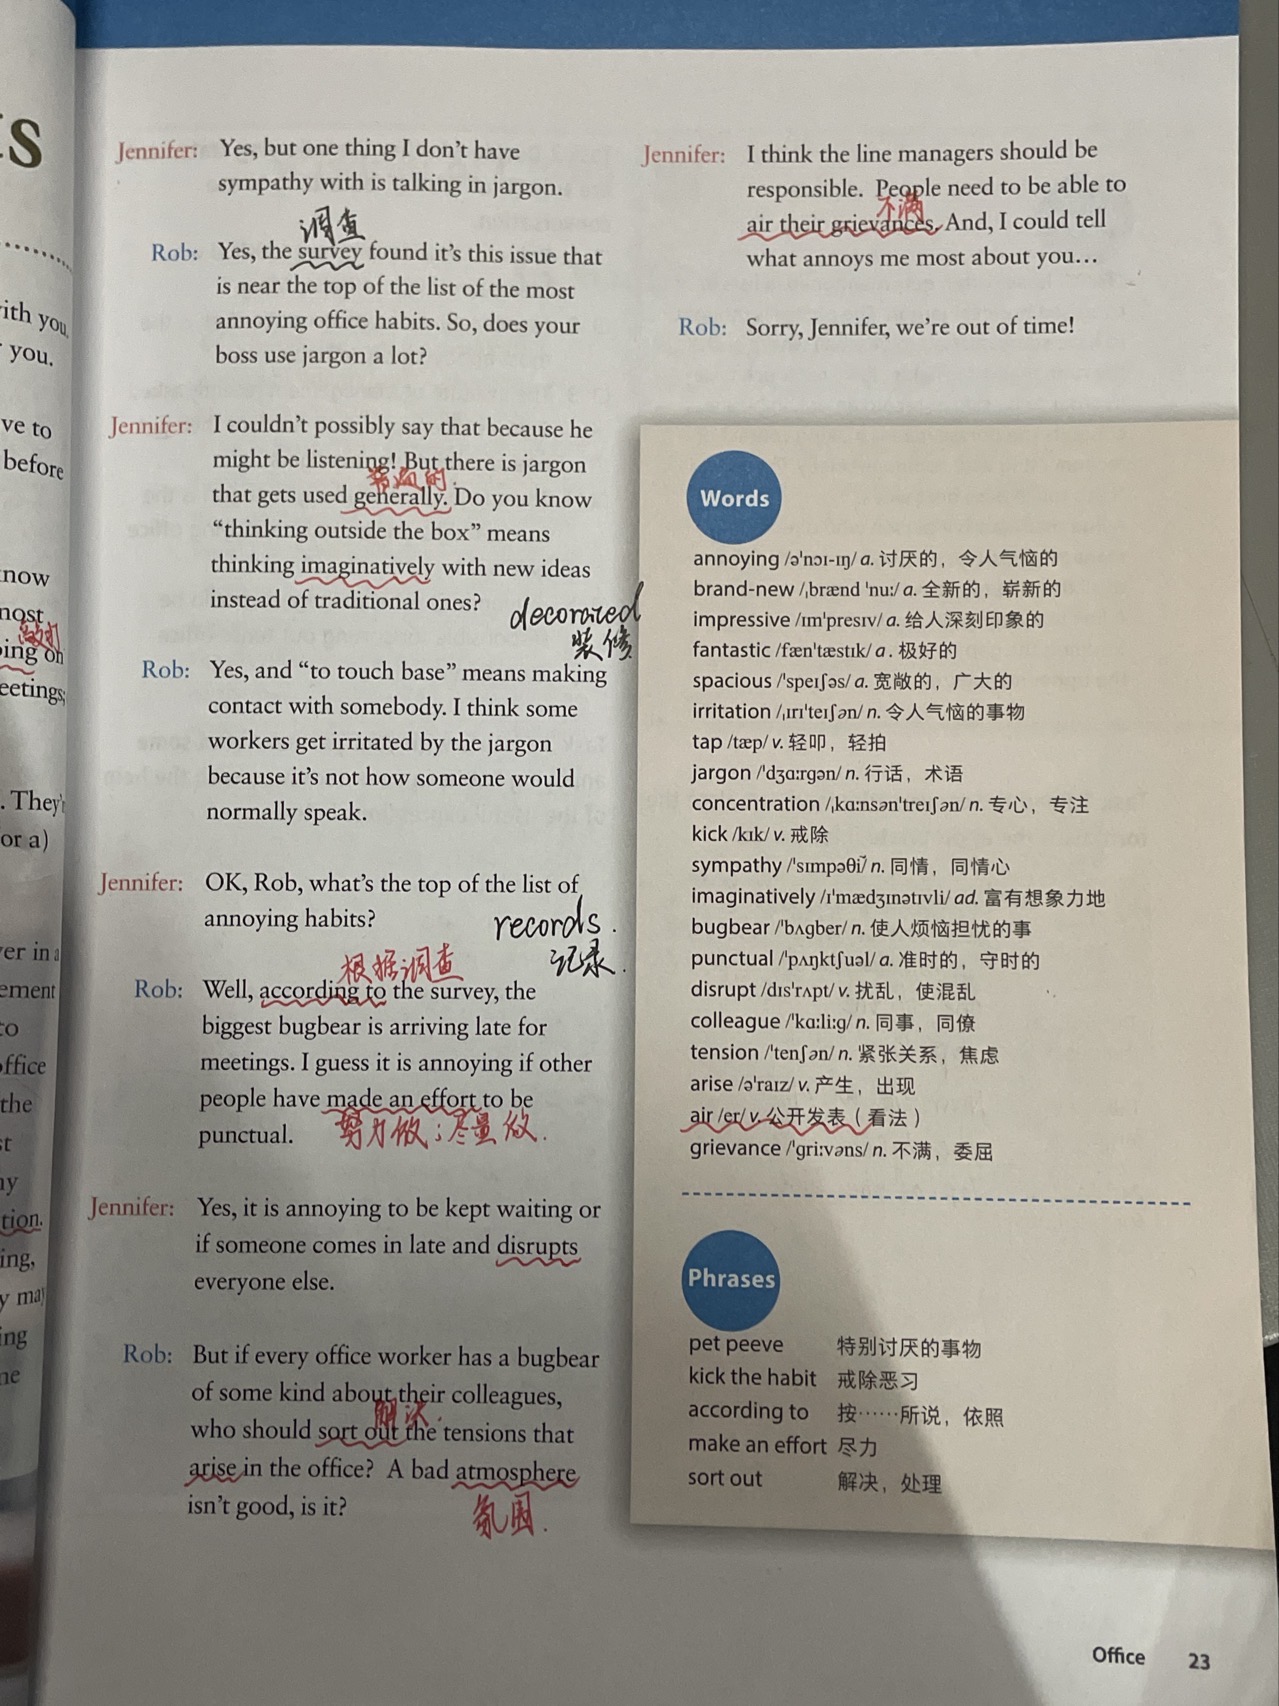 IS
with you
you.
ve to
before
now
most
敲打
ping on
eetings;
. They'r
or a)
ver in a
ement
to
office
the
st
ny
tion.
ing,
y may
ing
me
Jennifer: Yes, but one thing I don't have
sympathy with is talking in jargon.
调查
Rob: Yes, the survey found it's this issue that
is near the top of the list of the most
annoying office habits. So, does your
boss use jargon a lot?
Jennifer: I couldn't possibly say that because he
might be listening! But there is jargon
普遍的
that gets used generally. Do you know
"thinking outside the box" means
thinking imaginatively with new ideas
instead of traditional ones?
decorated
装修
Rob: Yes, and "to touch base" means making
contact with somebody. I think some
workers get irritated by the jargon
because it's not how someone would
normally speak.
Jennifer: OK, Rob, what's the top of the list of
annoying habits?
records.
记录.
根据调查
Rob: Well, according to the survey, the
biggest bugbear is arriving late for
meetings. I guess it is annoying if other
people have made an effort to be
punctual.
努力做；尽量做.
Jennifer: Yes, it is annoying to be kept waiting or
if someone comes in late and disrupts
everyone else.
Rob: But if every office worker has a bugbear
of some kind about their colleagues,
解决.
who should sort out the tensions that
arise in the office? A bad atmosphere
isn't good, is it?
氛围.
Jennifer: I think the line managers should be
responsible. People need to be able to
不满
air their grievances. And, I could tell
what annoys me most about you…
Rob: Sorry, Jennifer, we're out of time!
Words
annoying /ə'nɔɪ-ɪŋ/ a. 讨厌的，令人气恼的
brand-new /ˌbrænd 'nu:/ a. 全新的，崭新的
impressive /ɪm'presɪv/ a. 给人深刻印象的
fantastic /fæn'tæstɪk/ a. 极好的
spacious /'speɪʃəs/ a. 宽敞的，广大的
irritation /ˌɪrɪ'teɪʃən/ n. 令人气恼的事物
tap /tæp/ v. 轻叩，轻拍
jargon /'dʒɑ:rgən/ n. 行话，术语
concentration /ˌkɑ:nsən'treɪʃən/ n. 专心，专注
kick /kɪk/ v. 戒除
sympathy /'sɪmpəθi/ n. 同情，同情心
imaginatively /ɪ'mædʒɪnətɪvli/ ad. 富有想象力地
bugbear /'bʌgber/ n. 使人烦恼担忧的事
punctual /'pʌŋktʃuəl/ a. 准时的，守时的
disrupt /dɪs'rʌpt/ v. 扰乱，使混乱
colleague /'kɑ:li:g/ n. 同事，同僚
tension /'tenʃən/ n. 紧张关系，焦虑
arise /ə'raɪz/ v. 产生，出现
air /er/ v. 公开发表（看法）
grievance /'gri:vəns/ n. 不满，委屈
Phrases
pet peeve 特别讨厌的事物
kick the habit 戒除恶习
according to 按……所说，依照
make an effort 尽力
sort out 解决，处理
Office 23